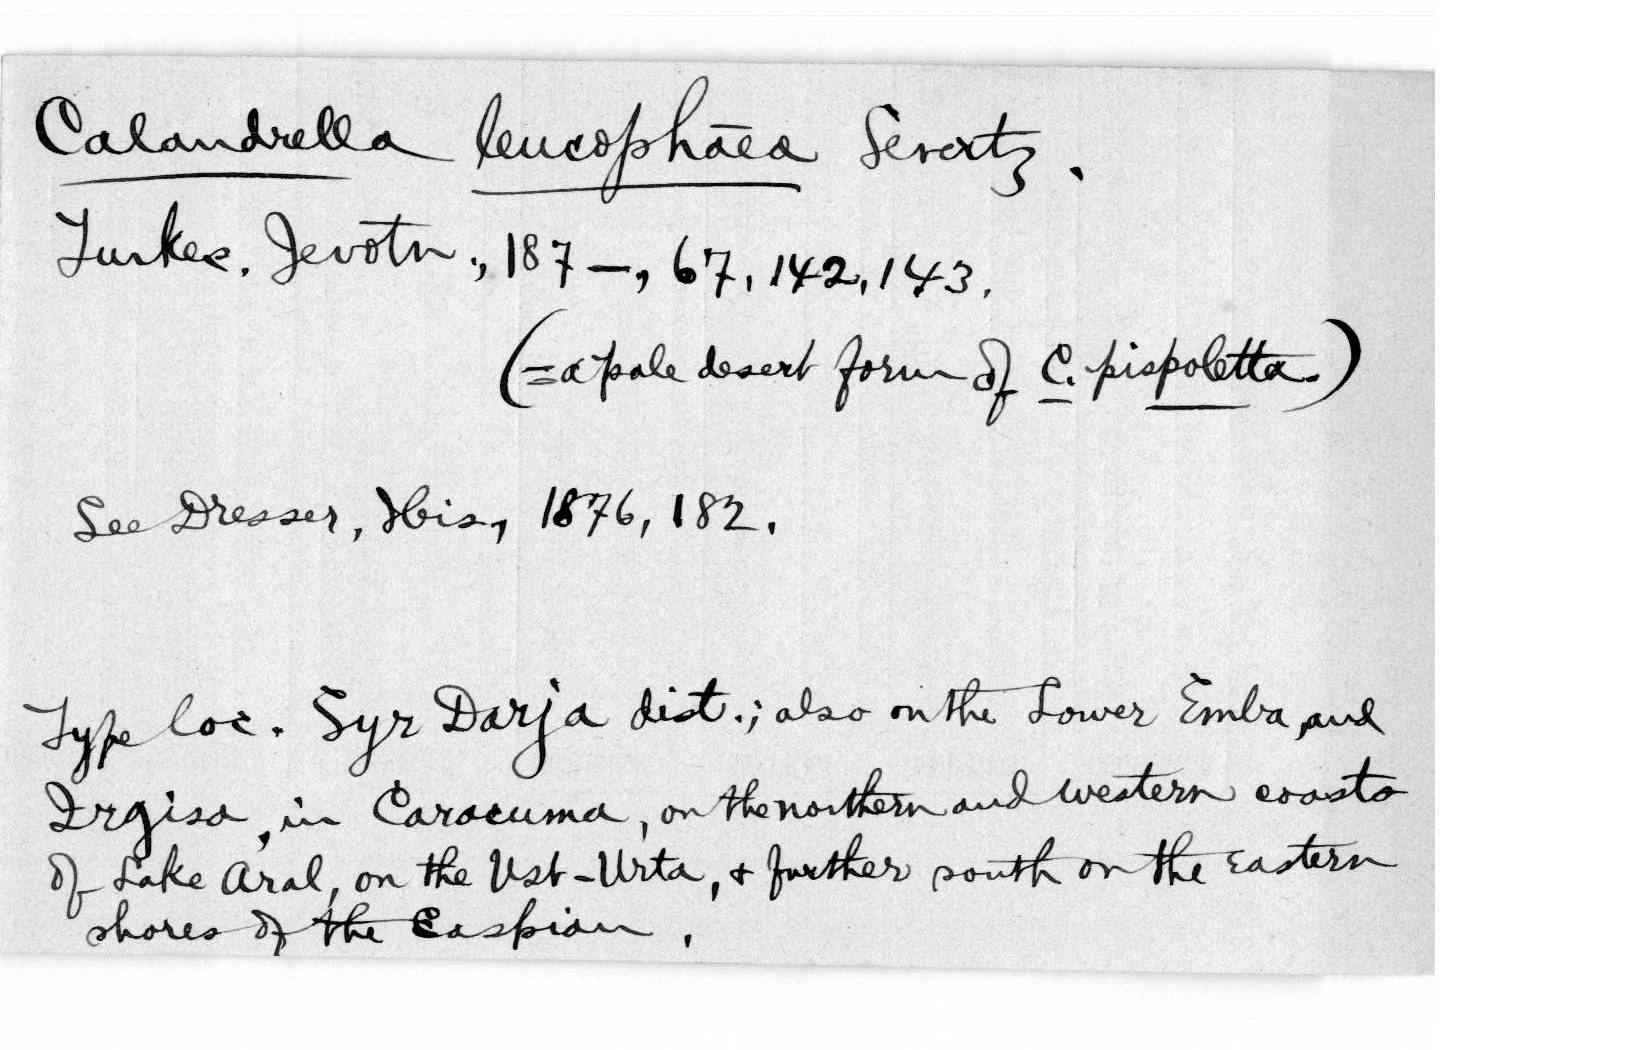 Calandrella leucophāea Severtz.
Turkes. Jevotn., 187—, 67, 142, 143.
(=a pale desert form of C. pispoletta.)
See Dresser, Ibis, 1876, 182.
Type loc. Syr Darja dist.; also on the Lower Emba, and
Irgisa, in Caracuma, on the northern and western coasts
of Lake Aral, on the Ust-Urta, & further south on the eastern
shores of the Caspian.